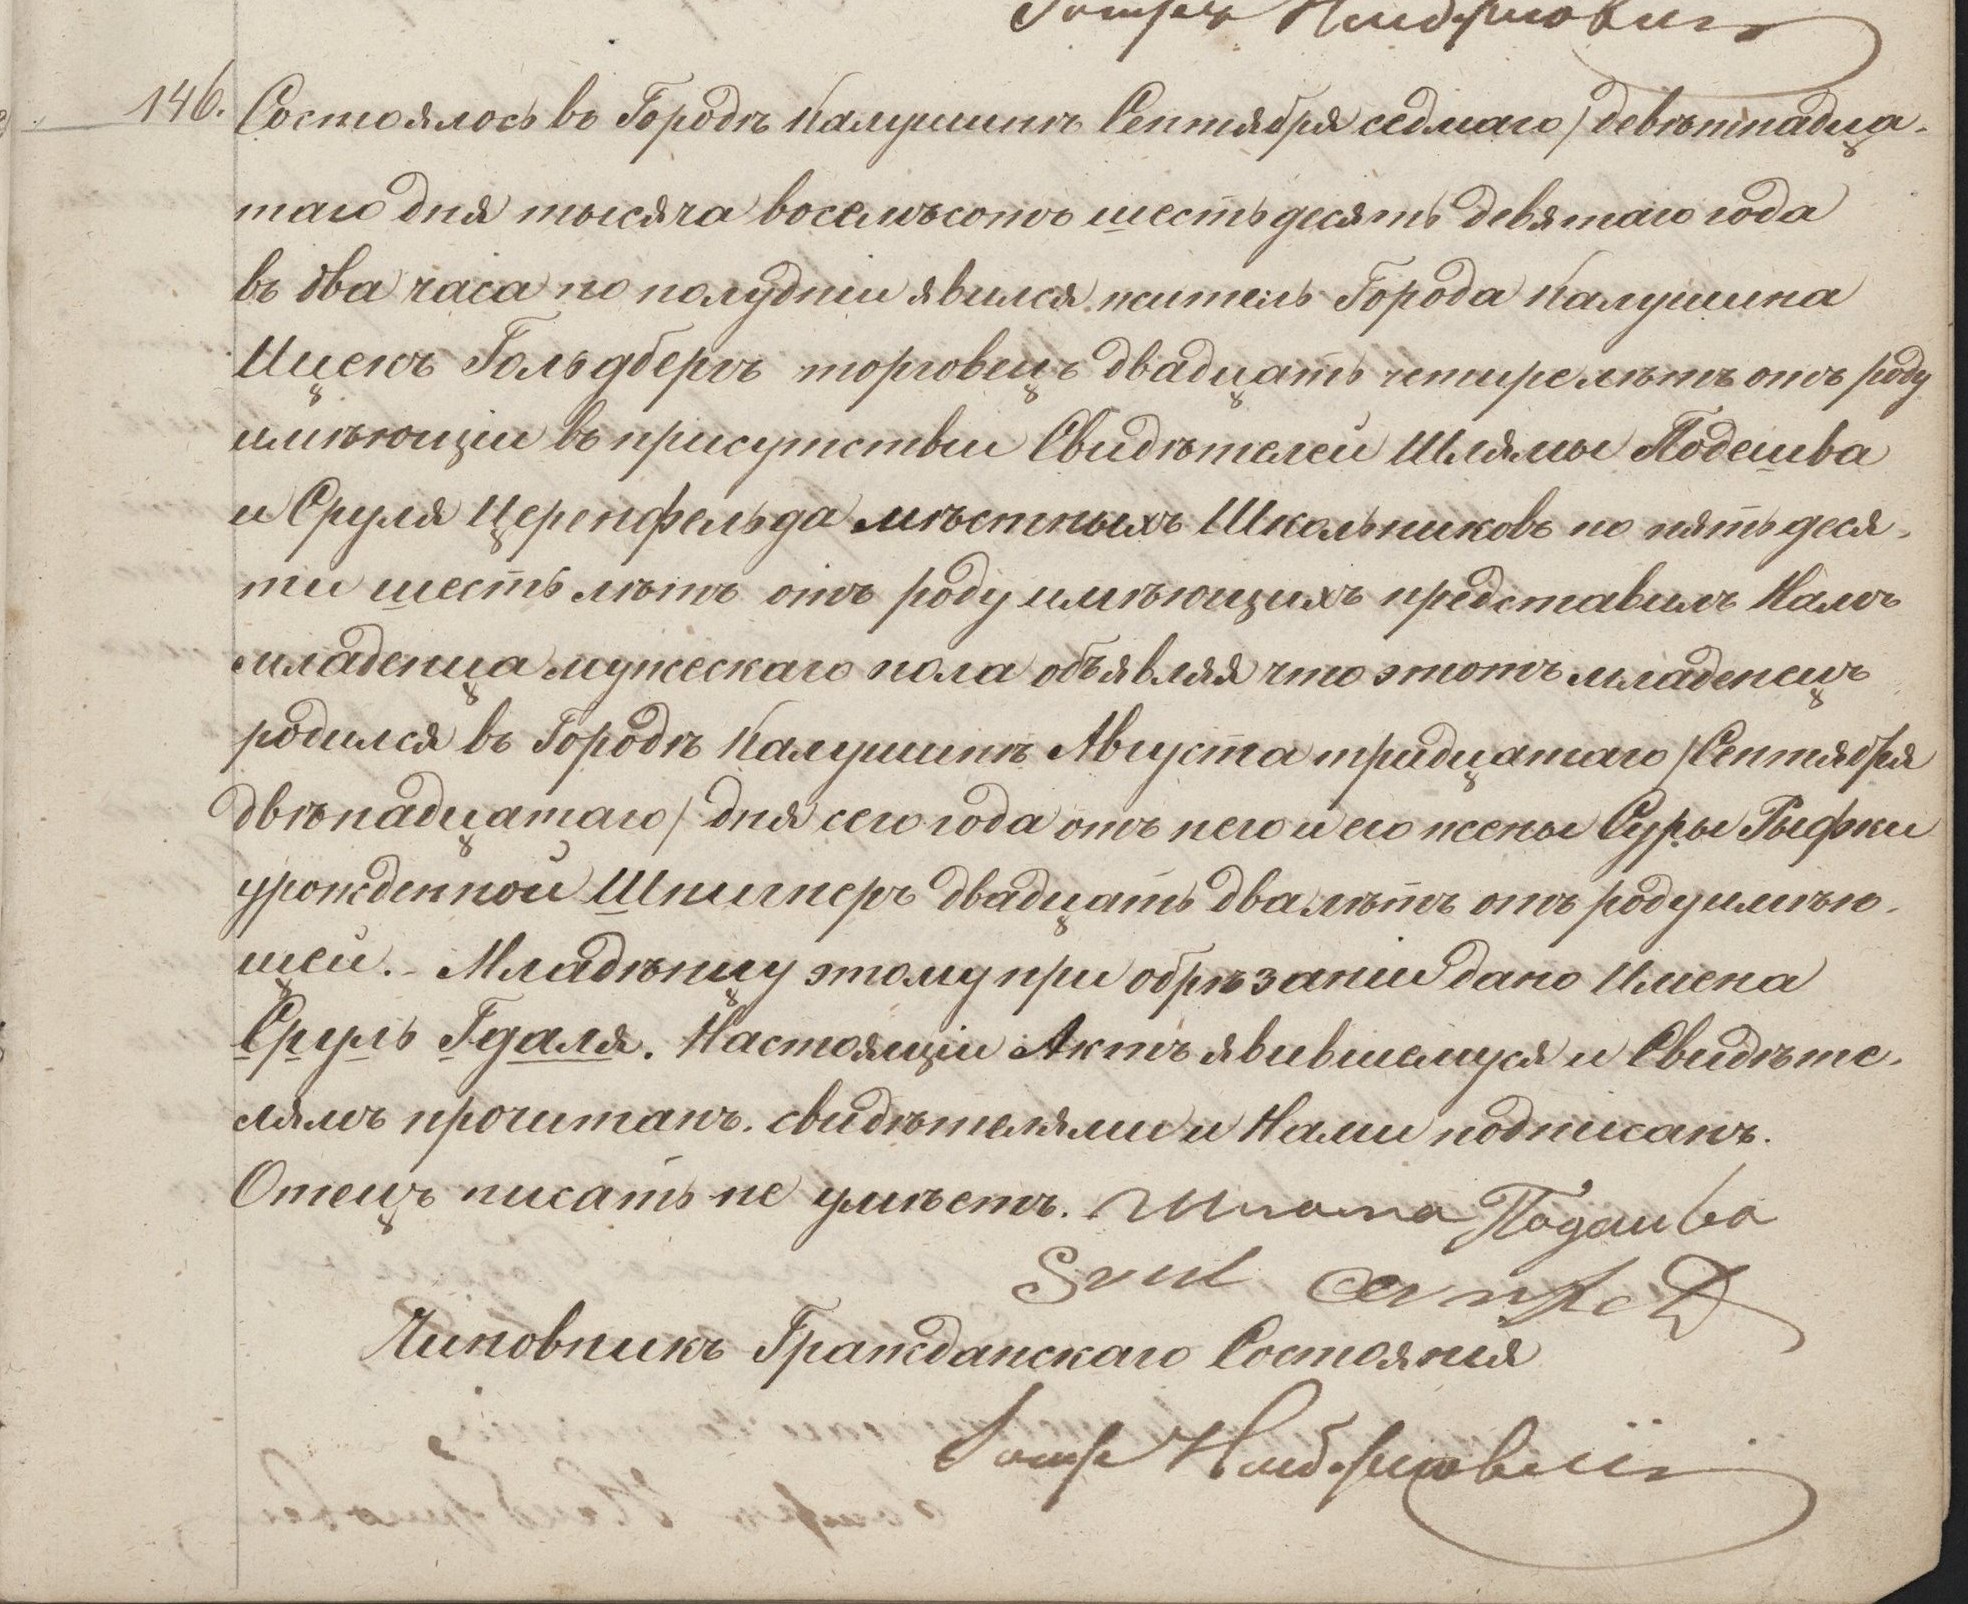 146. Состоялось въ Городѣ Калушинѣ Сентября седмаго / девѣтнадца-
таго дня тысяча восемьсотъ шестьдесять девятаго года
въ два часа по полудніи явился житель Города Калушина
Ицекъ Гольдбергъ торговецъ двадцать четире лѣтъ отъ роду
имѣющіи въ присутствіи Свидѣтелей Шлямы Подешва
и Сруля Церенфельда мѣстныхъ Школьниковъ по пятьдеся-
ти шесть лѣтъ отъ роду имѣющихъ представилъ Намъ
младенца мужескаго пола объявляя что этотъ младенецъ
родился въ Городѣ Калушинѣ Августа тридцатаго / Сентября
двѣнадцатаго / дня сего года отъ него и его жены Суры Рыфки
урожденной Шпилеръ двадцать два лѣтъ отъ роду имѣю-
щей. - Младѣнцу этому при обрѣзаніи дано Имена
Сруль Гдаля. Настоящіи Актъ явившемуся и Свидѣте-
лямъ прочитанъ. свидѣтелями и Нами подписанъ.
Отецъ писать не умѣетъ. Шлама Подашва
Srul
Чиновникъ Гражданскаго Состоянія